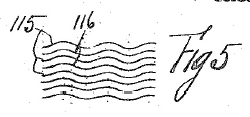 115 116
Fig 5